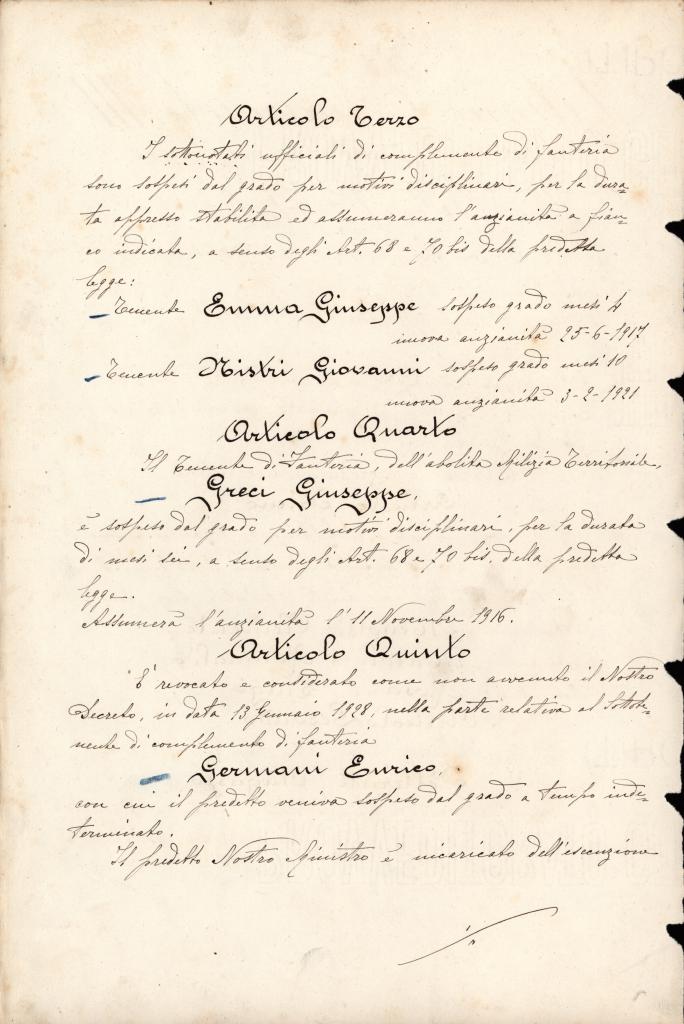 Articolo Terzo
I sottonotati ufficiali di complemento di fanteria
sono sospesi dal grado per motivi disciplinari, per la dura-
ta appresso stabilita ed assumeranno l'anzianità a fian-
co indicata, a senso degli Art. 68 e 70 bis della predetta
legge:
- Tenente Emma Giuseppe sospeso grado mesi 4
nuova anzianità 25-6-1917
- Tenente Nistri Giovanni sospeso grado mesi 10
nuova anzianità 3-2-1921
Articolo Quarto
Il Tenente di Fanteria, dell'abolita Milizia Territoriale,
- Greci Giuseppe,
è sospeso dal grado per motivi disciplinari, per la durata
di mesi sei, a senso degli Art. 68 e 70 bis. della predetta
legge.
Assumerà l'anzianità l'11 Novembre 1916.
Articolo Quinto
E' revocato e considerato come non avvenuto il Nostro
Decreto, in data 13 Gennaio 1928, nella parte relativa al Sottote-
nente di complemento di fanteria
- Germani Enrico,
con cui il predetto veniva sospeso dal grado a tempo inde-
terminato.
Il predetto Nostro Ministro è incaricato dell'esecuzione